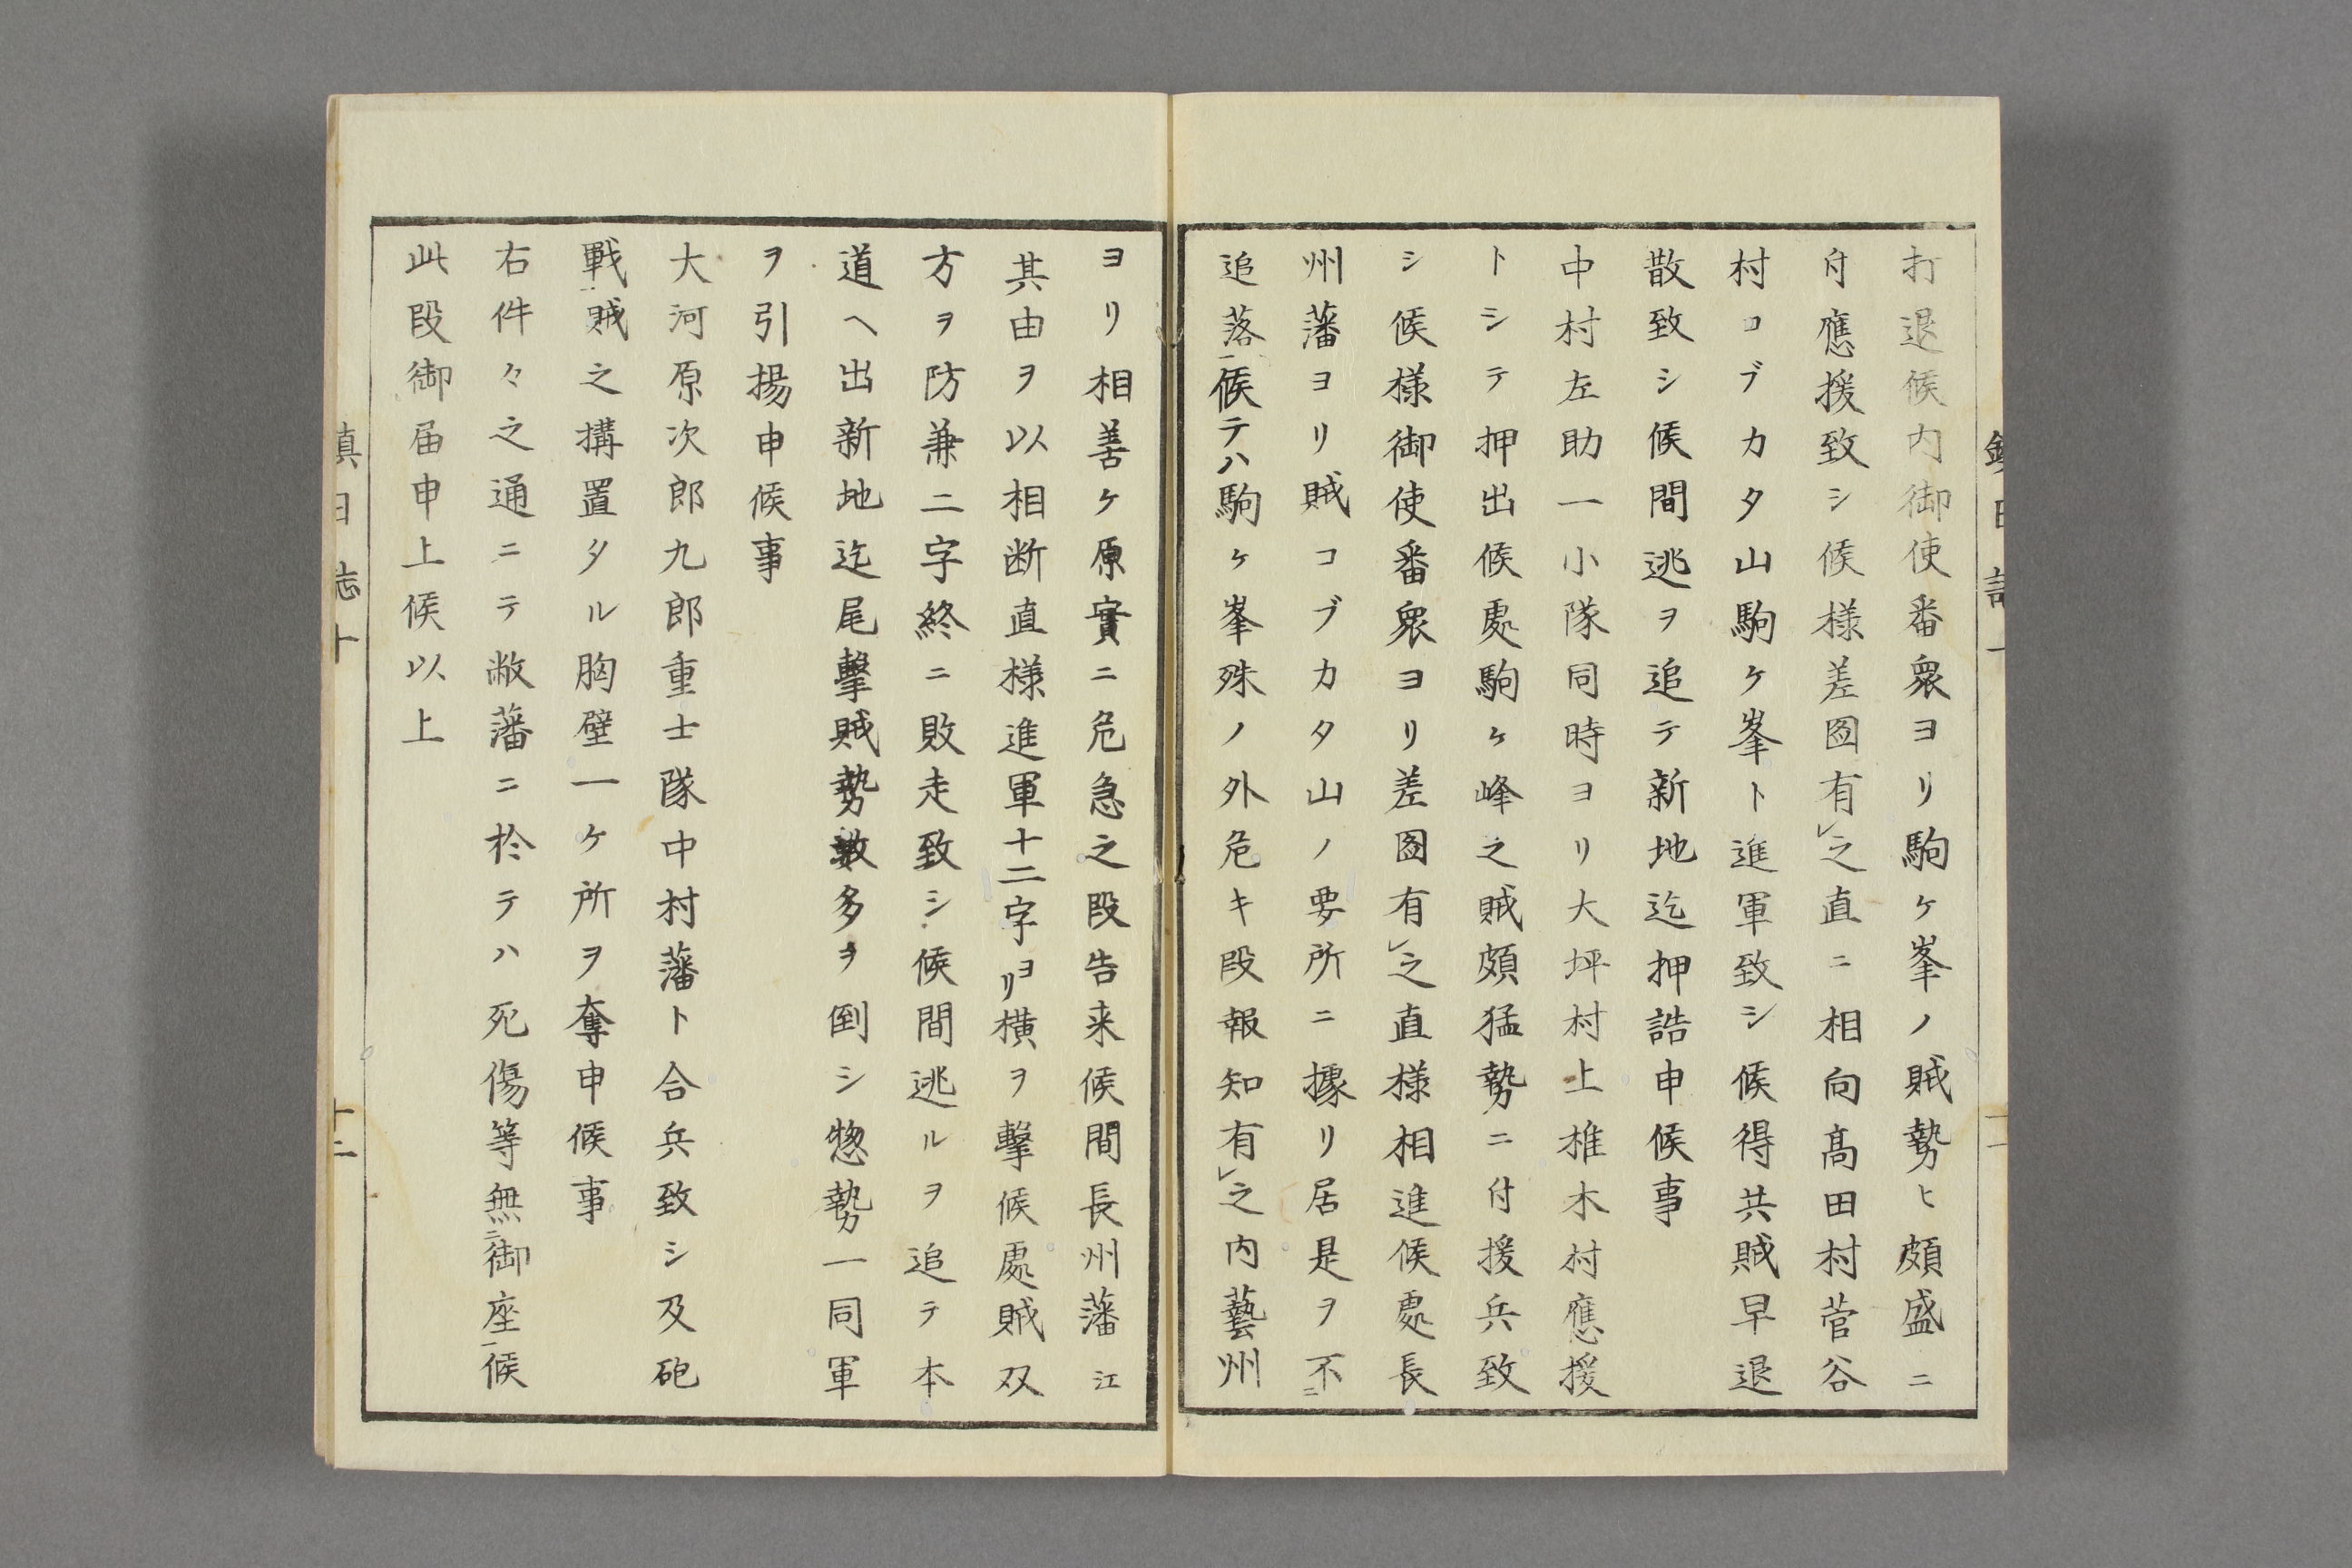 打退候内御使番衆ヨリ駒ケ峯ノ賊勢ヒ頗盛ニ
付應援致シ候様差図有㆑之直ニ相向髙田村菅谷
村コブカタ山駒ケ峯ト進軍致シ候得共賊早退
散致シ候間逃ヲ追テ新地迄押詰申候事
中村左助一小隊同時ヨリ大坪村上椎木村應援
トシテ押出候處駒ケ峰之賊頗猛勢ニ付援兵致
シ候様御使番衆ヨリ差図有㆑之直様相進候處長
州藩ヨリ賊コブカタ山ノ要所ニ據リ居是ヲ不㆓
追落㆒候テハ駒ケ峯殊ノ外危キ段報知有㆑之内藝州
ヨリ相善ケ原實ニ危急之段告来候間長州藩江
其由ヲ以相断直様進軍十二字ヨリ横ヲ擊候處賊双
方ヲ防兼二字終ニ敗走致シ候間逃ルヲ追テ本
道ヘ出新地迄尾擊賊勢数多ヲ倒シ惣勢一同軍
ヲ引揚申候事
大河原次郎九郎重士隊中村藩ト合兵致シ及砲
戰賊之搆置タル胸壁一ケ所ヲ奪申候事
右件々之通ニテ敝藩ニ於テハ死傷等無㆓御座㆒候
此段御届申上候以上
鎮日誌十
十二